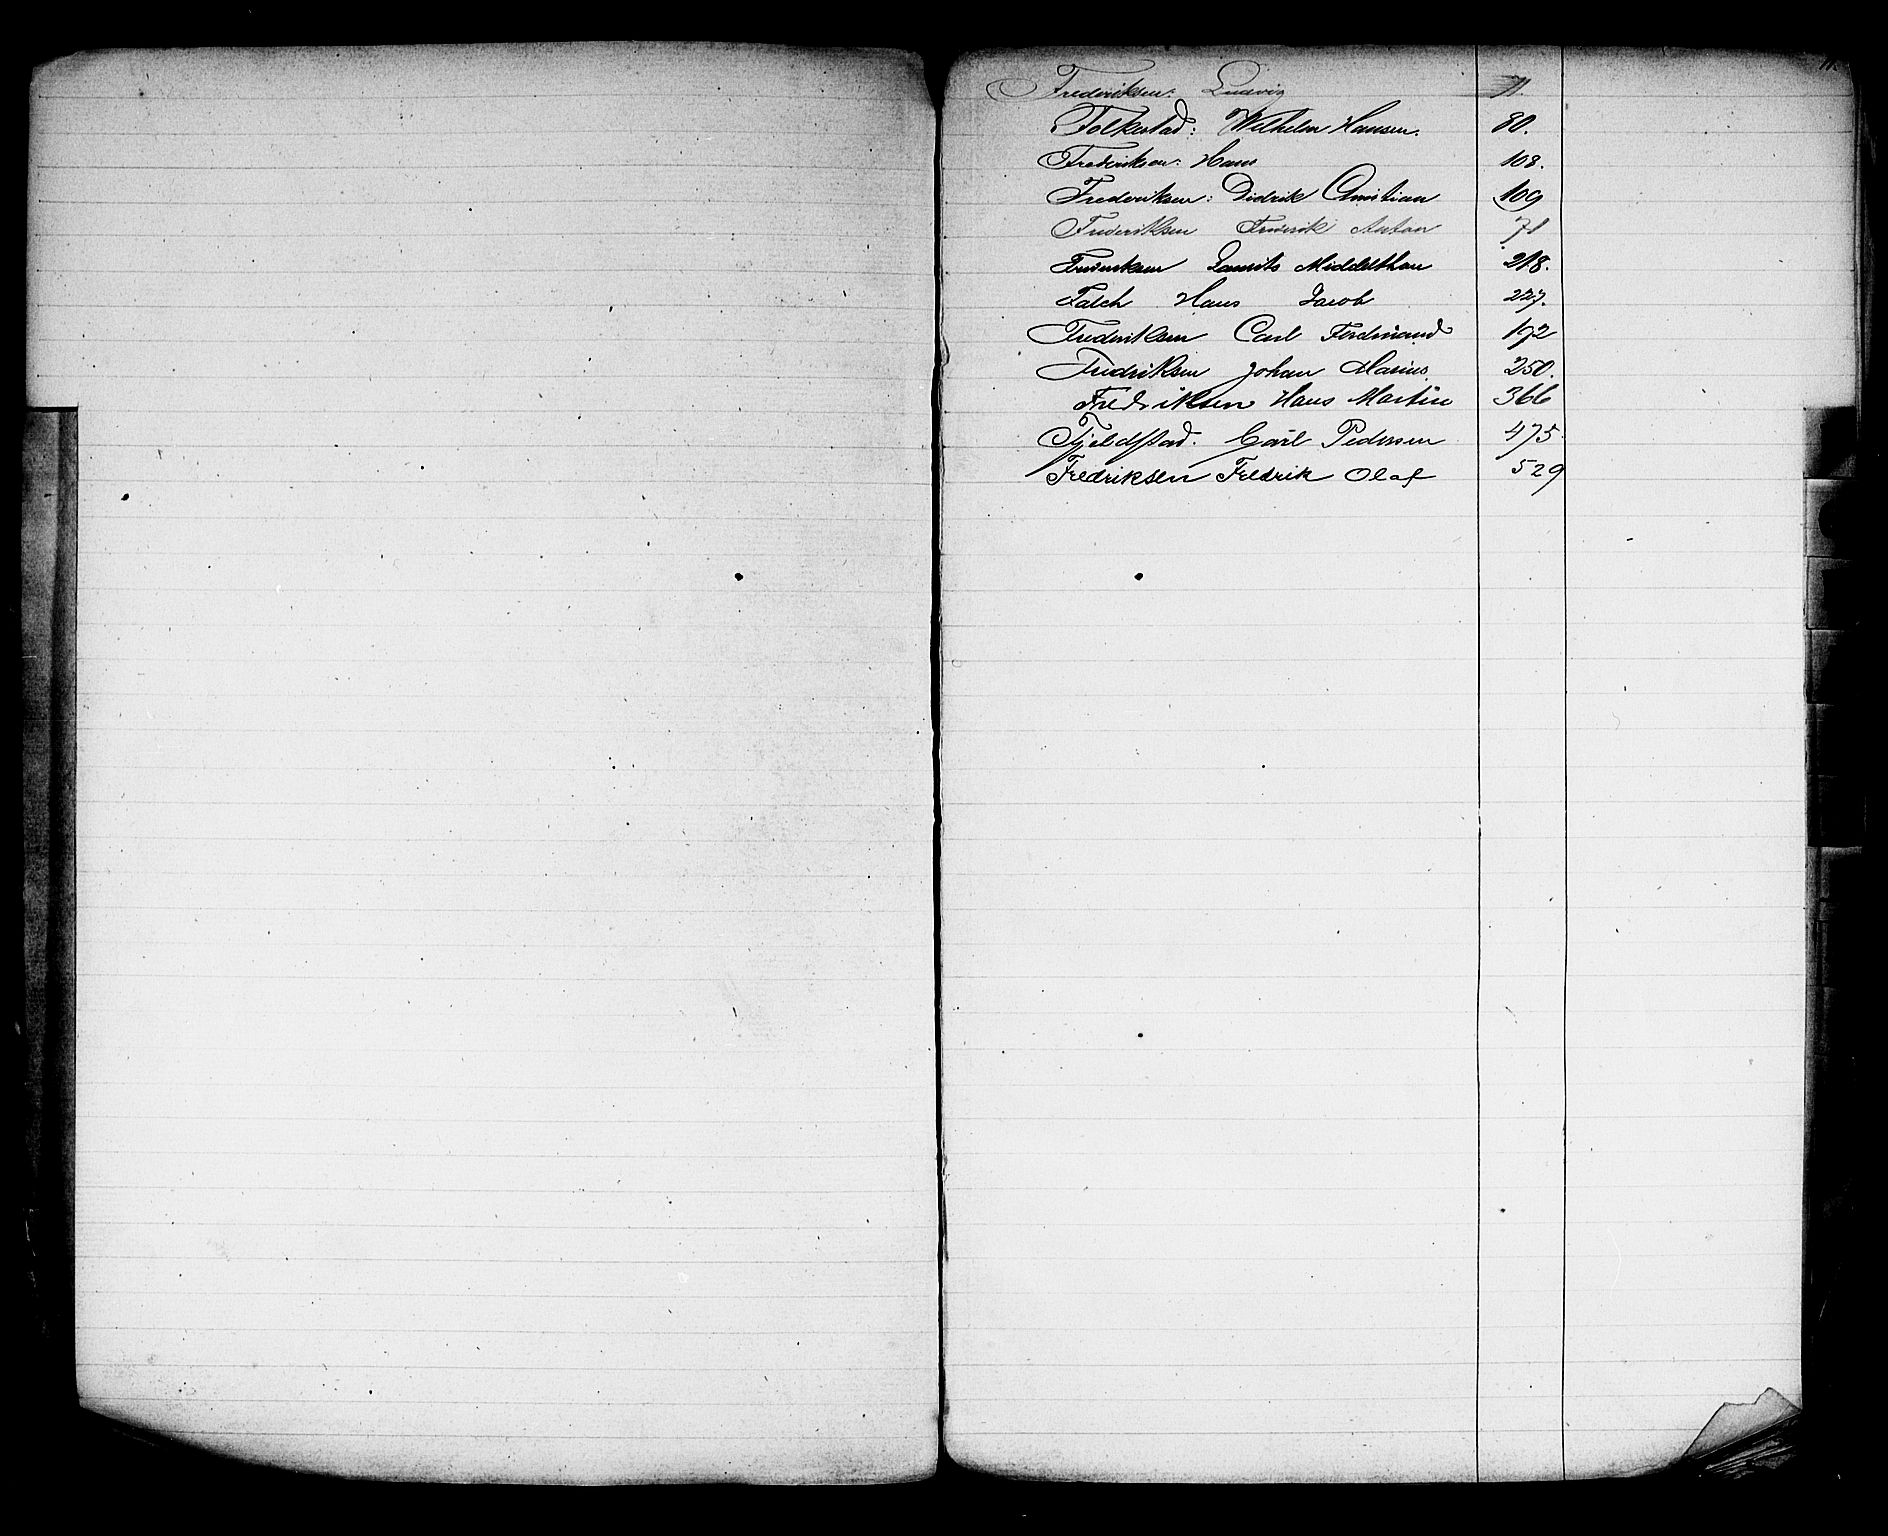 Frederiksen: Ludvig 71.
Folkestad: Wilhelm Hansen. 80.
Frederiksen: Hans 108.
Frederiksen: Didrik Christian 109
Frederiksen Frederik Anton 71
Frederiksen Laurits Middelthon 218.
Falch Hans Jacob 227.
Frederiksen Carl Ferdinand 192
Fredriksen Johan Marius 250.
Fredriksen Hans Martin 366
Fjeldstad. Carl Pedersen 475
Fredriksen Fredrik Olaf 529